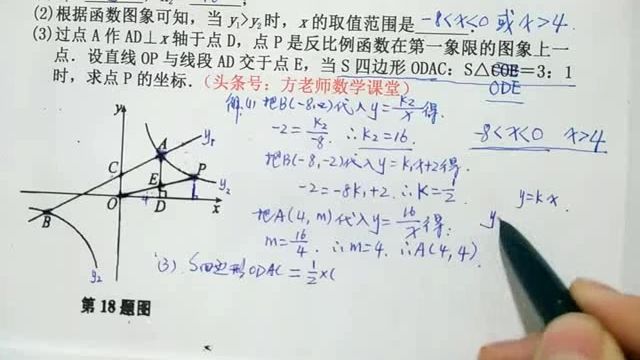 (2)根据函数图象可知，当 y₁>y₂时，x 的取值范围是 -8<x<0 或 x>4.
(3)过点 A 作 AD⊥x 轴于点 D，点 P 是反比例函数在第一象限的图象上一
点．设直线 OP 与线段 AD 交于点 E，当 S 四边形 ODAC：S△COE=3：1
ODE
时，求点 P 的坐标．(头条号：方老师数学课堂)
解.(1) 把B(-8,-2)代入 y=k₂/x 得.
-2=k₂/-8. ∴k₂=16.
-8<x<0 x>4
把B(-8,-2)代入 y=k₁x+2得.
-2=-8k₁+2. ∴K=1/2.
y=kx.
y
把A(4,m)代入 y=16/x 得:
m=16/4. ∴m=4. ∴A(4,4).
(3) S四边形ODAC=1/2×(
y
A
y₁
C
P
E
y₂
O
4
D
x
B
y₂
第 18 题图